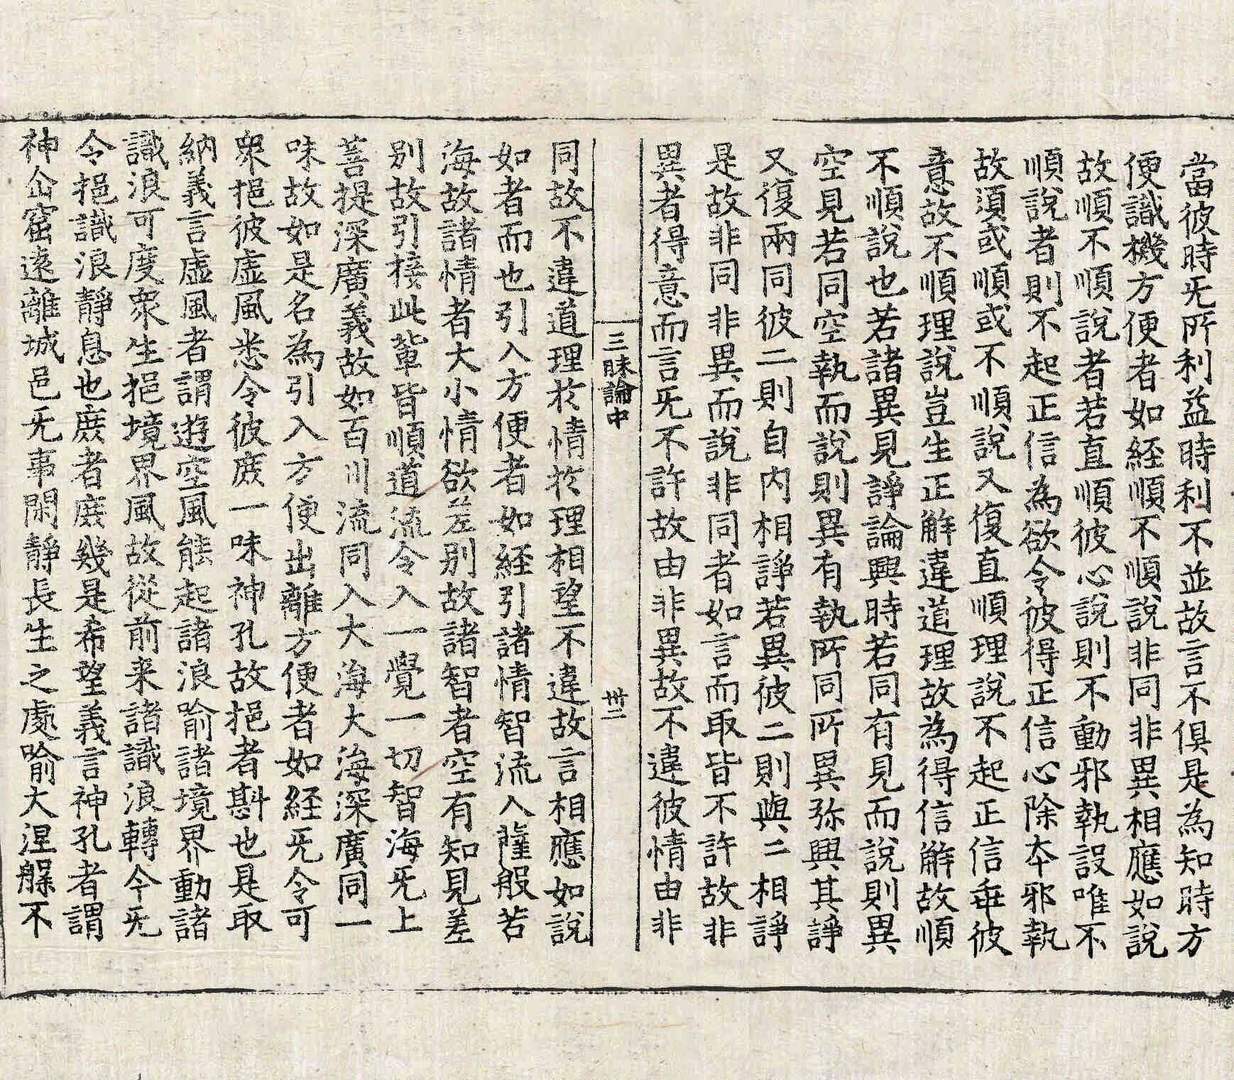 當彼時旡所利益時利不並故言不俱是為知時方
便識機方便者如経順不順說非同非異相應如說
故順不順說者若直順彼心說則不動邪執設唯不
順說者則不起正信為欲令彼得正信心除夲邪執
故須或順或不順說又復直順理說不起正信乖彼
意故不順理說豈生正解違道理故為得信解故順
不順說也若諸異見諍論興時若同有見而說則異
空見若同空執而說則異有執所同所異弥興其諍
又復兩同彼二則自內相諍若異彼二則與二相諍
是故非同非異而說非同者如言而取皆不許故非
異者得意而言旡不許故由非異故不違彼情由非
三昧論中 卅二
同故不違道理於情於理相望不違故言相應如說
如者而也引入方便者如経引諸情智流入薩般若
海故諸情者大小情欲差別故諸智者空有知見差
別故引接此軰皆順道流令入一覺一切智海旡上
菩提深廣義故如百川流同入大海大海深廣同一
味故如是名為引入方便出離方便者如経旡令可
衆挹彼虛風悉令彼庻一味神孔故挹者斟也是取
納義言虛風者謂遊空風能起諸浪喻諸境界動諸
識浪可度衆生挹境界風故從前来諸識浪轉今旡
令挹識浪靜息也庻者庻幾是希望義言神孔者謂
神仚窟遠離城邑旡事閑靜長生之處喻大涅槃不